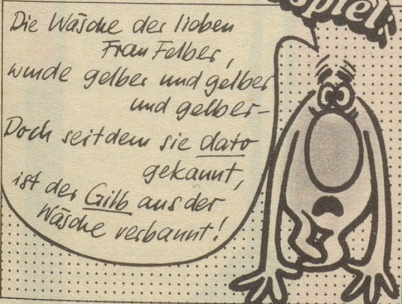 spiel:
Die Wäsche der lieben
Frau Felber,
wurde gelber und gelber
und gelber-
Doch seitdem sie dato
gekannt,
ist der Gilb aus der
Wäsche verbannt!